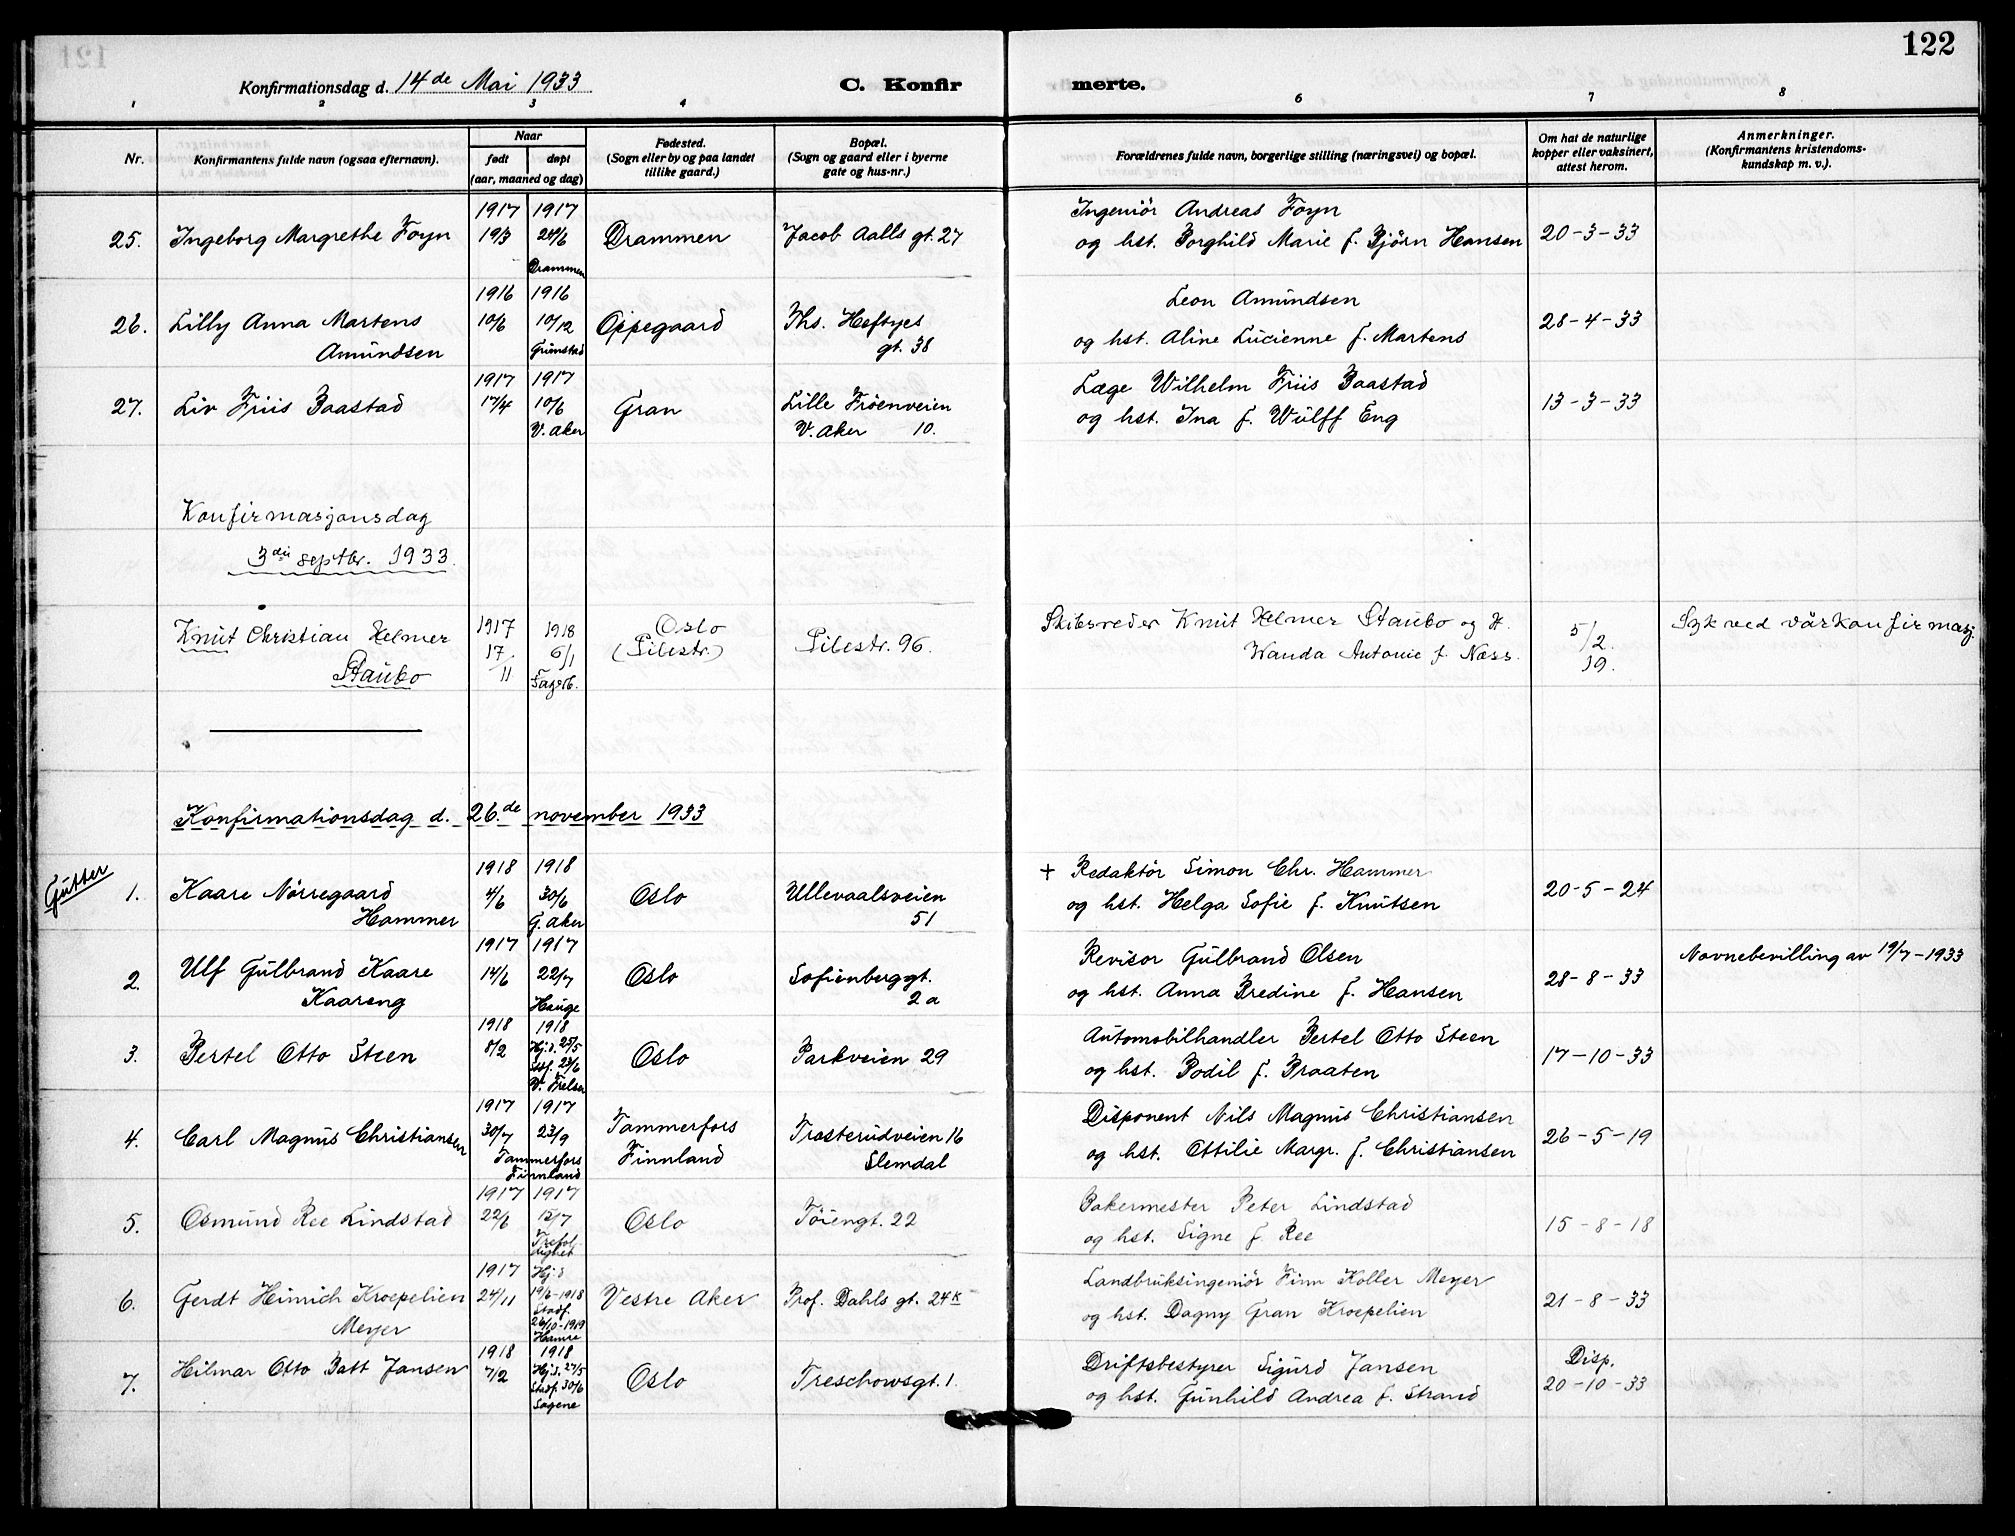 122
Konfirmationsdag d. 14de Mai 1933
C. Konfir merte.
1 2 3 4 6 7 8
Nr.
Konfirmantens fulde navn (ogsaa efternavn).
Naar
født døpt
(aar, maaned og dag)
Fødested.
(Sogn eller by og paa landet
tillike gaard.)
Bopæl.
(Sogn og gaard eller i byerne
gate og hus-nr.)
Forældrenes fulde navn, borgerlige stilling (næringsvei) og bopæl.
Om hat de naturlige
kopper eller vaksinert,
attest herom.
Anmerkninger.
(Konfirmantens kristendoms-
kundskap m. v.).
1917 1917 Ingeniör Andreas Foyn
25. Ingeborg Margrethe Foyn 19/3 24/6 Drammen Jacob Aalls gt. 27 og hst. Borghild Marie f. Björn Hansen 20-3-33
Drammen
1916 1916 Leon Amundsen
26. Lilly Anna Martens 10/6 10/12 Oppegaard Ths. Heftyes og hst. Aline Lucienne f. Martens 28-4-33
Amundsen Grimstad gt. 38
1917 1917 Læge Wilhelm Friis Baastad
27. Liv Friis Baastad 17/4 10/6 Gran Lille Fröenveien og hst. Ina f. Wulff Eng 13-3-33
V. Aker V. Aker 10.
Konfirmasjonsdag
3die septbr. 1933.
Knut Christian Helmer 1917 1918 Oslo Pilestr. 96. Skibsreder Knut Helmer Staubo og H. 5/2. Syk ved vårkonfirmasj.
Staubo 17. 6/1 (Pilestr.) Wanda Antonie f. Næss. 19.
11 Fagerb.
Konfirmationsdag d. 26.de november 1933
Gutter
1918 1918 + Redaktör Simon Chr. Hammer
1. Kaare Nörregaard 4/6 30/6 Oslo Ullevaalsveien og hst. Helga Sofie f. Knutsen 20-5-24
Hammer G. Aker 51
1917 1917 Revisor Gulbrand Olsen Navnebevilling av 19/7-1933
2. Ulf Gulbrand Kaare 14/6 22/7 Oslo Sofienberggt. og hst. Anna Bredine f. Hansen 28-8-33
Kaareng Hauge 2a
1918 1918 Automobilhandler Bertel Otto Steen
3. Bertel Otto Steen 8/2 Hj.d. 25/5 Oslo Parkveien 29 og hst. Bodil f. Braaten 17-10-33
V. Frelser
1917 1917 Disponent Nils Magnus Christiansen
4. Carl Magnus Christiansen 30/7 23/9 Tammerfors Trosterudveien 16 og hst. Ottilie Margr. f. Christiansen 26-5-19
Tammerfors Finnland Slemdal
Finnland
1917 1917 Bakermester Peter Lindstad
5. Osmund Ree Lindstad 22/6 15/7 Oslo Töiengt. 22 og hst. Signe f. Ree 15-8-18
Trefoldighet
1917 Hj.d Landbruksingeniör Finn Koller Meyer
6. Gerdt Heinrich Kroepelien 24/11 19/6-1918 Vestre Aker Prof. Dahls gt. 24K og hst. Dagny Gran Kroepelien 21-8-33
Meyer Stadf. 26/10-1919
Hamre
1918 1918 Driftsbestyrer Sigurd Jansen Disp.
7. Hilmar Otto Batt Jansen 7/2 Hj.d. 27/5 Oslo Treschowsgt. 1. og hst. Gunhild Andrea f. Strand 20-10-33
Stadf. 30/6
Sagene